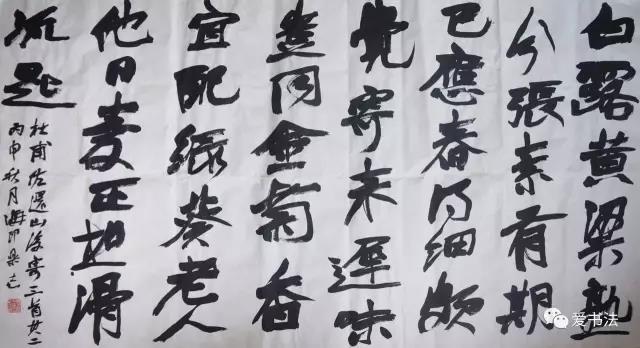 白露黄粱熟
分張素有期
已應舂得细颇
覺寄来遲味
豈同金菊香
宜配緑葵老人
他日爱正想滑
流匙
杜甫佐還山後寄三首其二
丙申秋月海印
爱书法